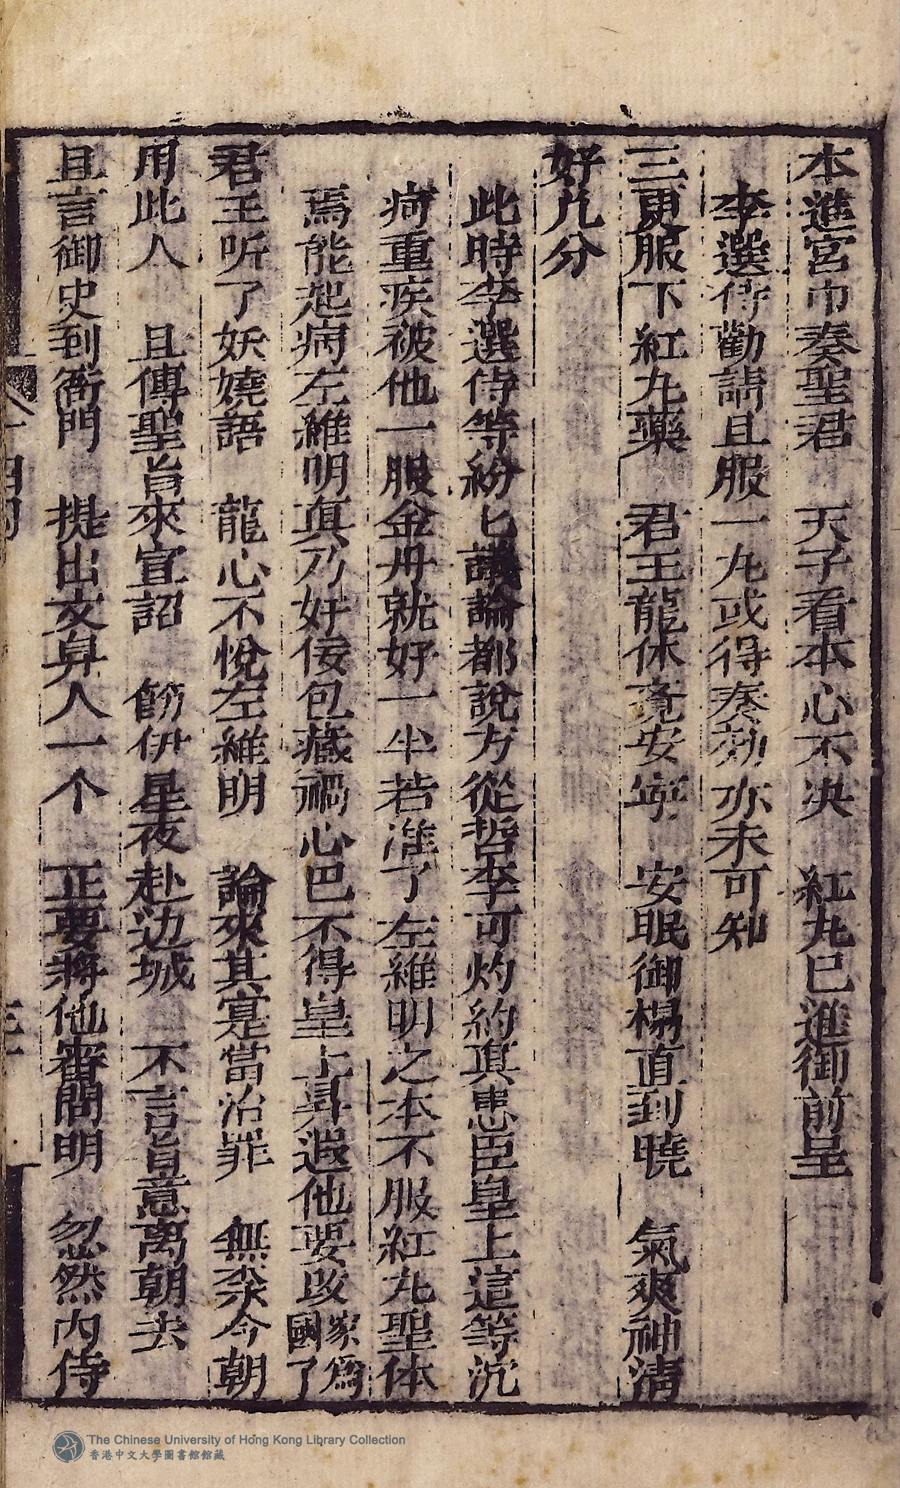 本進宮巾奏聖君　天子看本心不决　紅丸已進御前呈
李選侍勸請且服一丸或得奏効亦未可知
三更服下紅丸藥　君王龍体竟安寕　安眠御榻直到曉　氣爽神清
好几分
此時李選侍等紛匕議論都說方從哲李可灼約真忠臣皇上這等沉
疴重疾被他一服金丹就好一半若准了左維明之本不服紅丸聖体
焉能起病左維明真乃奸佞包藏禍心巴不得皇上昇遐他要改國家爲了
君王听了妖嬈語　龍心不悅左維明　論來其寔當治罪　無奈今朝
用此人　且傳聖旨來宣詔　餙伊星夜赴边城　不言旨意离朝去
且言御史到衙門　提出文昇人一个　正要將他審問明　忽然内侍
The Chinese University of Hong Kong Library Collection
香港中文大學圖書館館藏